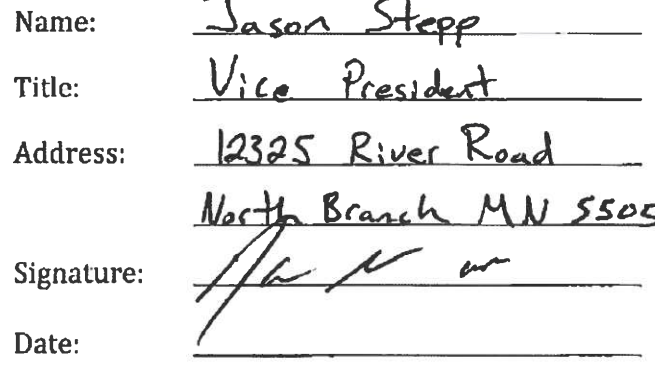 Name: Jason Stepp
Title: Vice President
Address: 12325 River Road
North Branch MN
Signature:
Date: